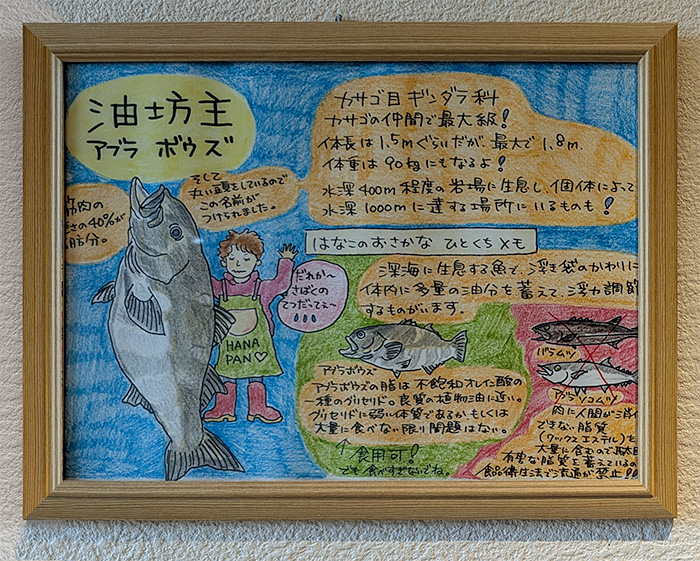 油坊主
アブラ ボウズ
筋肉の
さの40%が
脂分。
そして
丸い頭をしているので
この名前が
つけられました。
カサゴ目 ギンダラ科
カサゴの仲間で最大級!
体長は1.5mぐらいだが、最大で1.8m.
体重は90kgにもなるよ!
水深400m程度の岩場に生息し、個体によって
水深1000mに達する場所にいるものも!
はなこのおさかな ひとくちメモ
深海に生息する魚で、浮き袋のかわりに
体内に多量の油分を蓄えて、浮力調節
するものがいます。
だれか〜
さばくの
てつだってぇ〜
HANA
PAN♡
アブラボウズ
アブラボウズの脂は不飽和オレイン酸の
一種のグリセリド。良質の植物油に近い。
グリセリドに弱い体質であるか、もしくは
大量に食べない限り問題はない。
↑食用可!
でも食べすぎないでね。
バラムツ
アブラソコムツ
肉に人間が消化
できない脂質
(ワックスエステル)を
大量に含むので
有害な脂質を蓄えているの
食品衛生法で流通が禁止!!